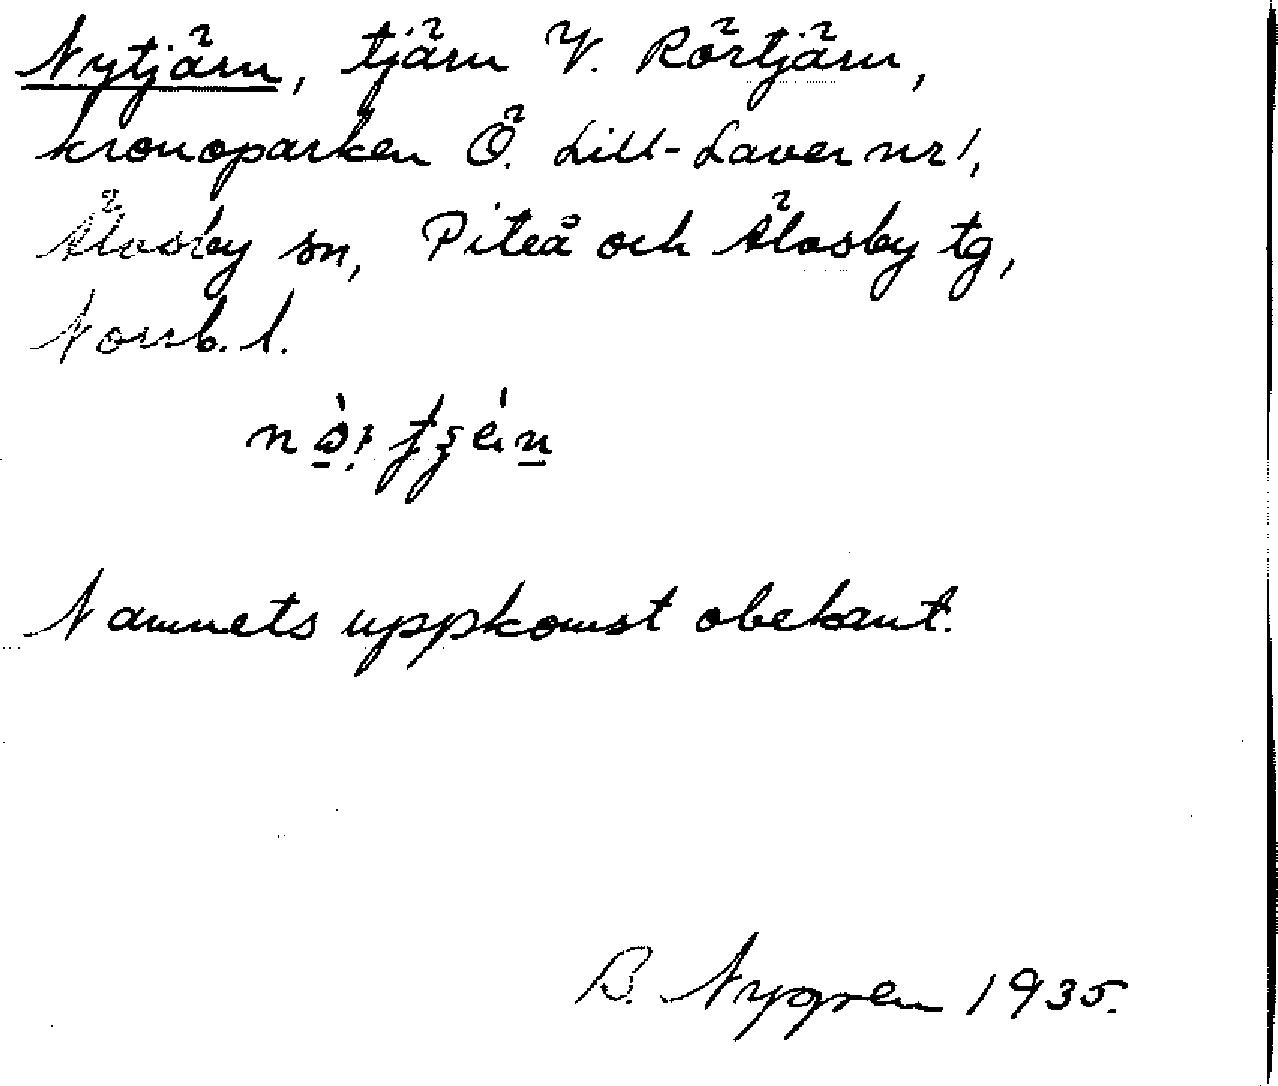 Nytjärn, tjärn V. Rörtjärn,
kronoparken Ö. Lill-Laver nr 1,
Älvsby sn, Piteå och Älvsby tg,
Norrb. l.
Namnets uppkomst obekant.
B. Nygren 1935.